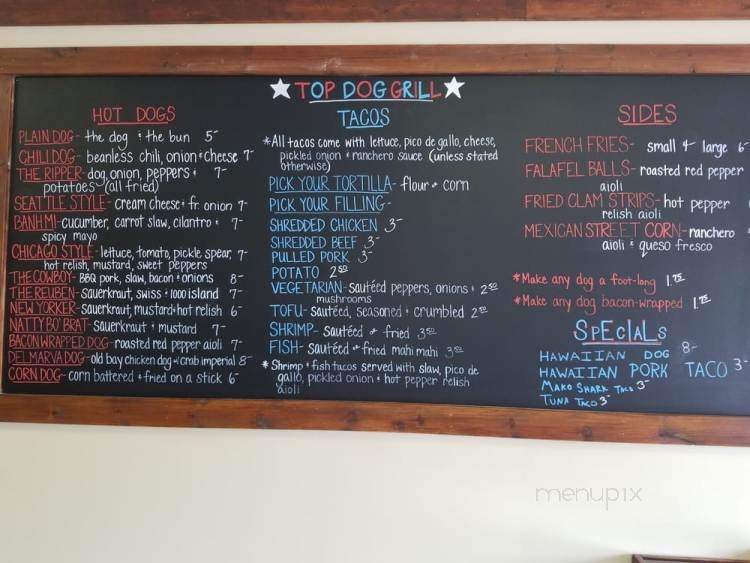 ★ TOP DOG GRILL ★
HOT DOGS
PLAIN DOG- the dog + the bun 5-
CHILI DOG- beanless chili, onion + cheese 7-
THE RIPPER- dog, onion, peppers + 7-
potatoes (all fried)
SEATTLE STYLE- cream cheese + fr. onion 7-
BANH MI- cucumber, carrot slaw, cilantro + 7-
spicy mayo
CHICAGO STYLE- lettuce, tomato, pickle spear, 7-
hot relish, mustard, sweet peppers
THE COWBOY- BBQ pork, slaw, bacon + onions 8-
THE REUBEN- Sauerkraut, swiss + 1000 island 7-
NEW YORKER- Sauerkraut, mustard + hot relish 6-
NATTY BO' BRAT- Sauerkraut + mustard 7-
BACON WRAPPED DOG- roasted red pepper aioli 7-
DELMARVA DOG- old bay chicken dog w/ crab imperial 8-
CORN DOG- corn battered + fried on a stick 6-
TACOS
*All tacos come with lettuce, pico de gallo, cheese,
pickled onion + ranchero sauce (unless stated
otherwise)
PICK YOUR TORTILLA- flour or corn
PICK YOUR FILLING-
SHREDDED CHICKEN 3-
SHREDDED BEEF 3-
PULLED PORK 3-
POTATO 2 50
VEGETARIAN- Sautéed peppers, onions + 2 50
mushrooms
TOFU- Sautéed, seasoned + crumbled 2 50
SHRIMP- Sautéed or fried 3 50
FISH- Sautéed or fried mahi mahi 3 50
* Shrimp + fish tacos served with slaw, pico de
gallo, pickled onion + hot pepper relish
aioli
SIDES
FRENCH FRIES- small 4- large 6-
FALAFEL BALLS- roasted red pepper
aioli
FRIED CLAM STRIPS- hot pepper
relish aioli
MEXICAN STREET CORN- ranchero
aioli + queso fresco
*Make any dog a foot-long 1.75
*Make any dog bacon-wrapped 1.75
SPECIALS
HAWAIIAN DOG 8-
HAWAIIAN PORK TACO 3-
MAKO SHARK TACO 3-
TUNA TACO 3-
menupix